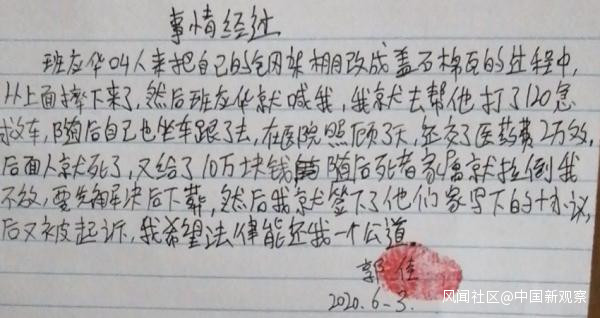 事情经过
班友华叫人来把自己的钢架棚改成盖石棉瓦的过程中,
从上面摔下来了,然后班友华就喊我,我就去帮他打了120急
救车,随后自己也坐车跟了去,在医院照顾了天,还交了医药费2万多,
后面人就死了,又给了10万块钱 随后死者家属就拉倒我
不放,要先解决后下葬,然后我就签下了他们家写下的协议,
后又被起诉,我希望法律能还我一个公道
郭佳
2020.6-3.
风闻社区@中国新观察